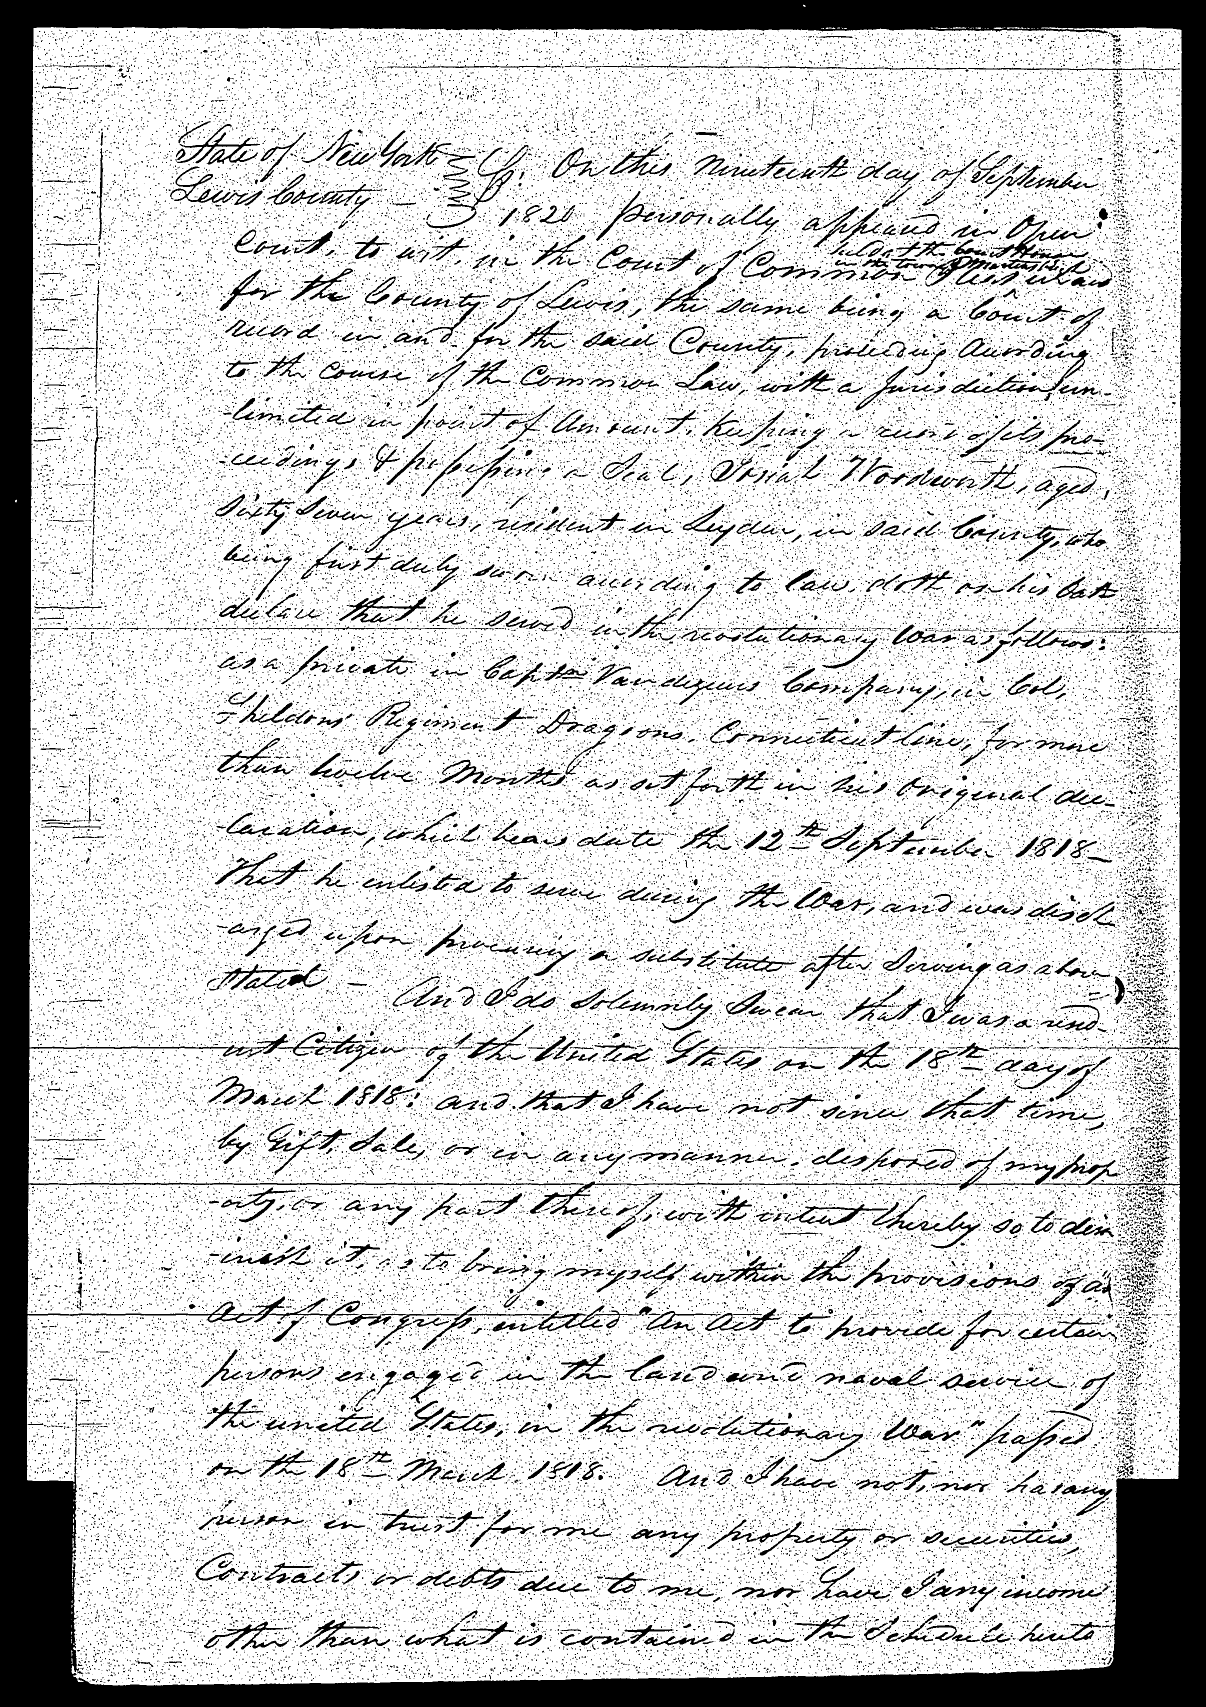 State of New York
Lewis County — } Ss: On this nineteenth day of September
1820 personally appeared in Open
Court, to wit, in the Court of Common Pleas in and
held at the Court House
in the town of Martinsburgh
for the County of Lewis, the same being a Court of
record in and for the said County, proceeding according
to the course of the Common Law, with a Jurisdiction un-
-limited in point of Amount, Keeping a record of its pro-
-ceedings & possessing a Seal, Josiah Woodworth, aged,
sixty seven years, resident in Leyden, in said County, who
being first duly sworn according to law, doth on his Oath
declare that he served in the revolutionary War as follows:
as a private in Captain Company, in Col,
Sheldons' Regiment Dragoons, Connecticut line, for more
than twelve Months as set forth in his Original dec-
-laration, which bears date the 12th September 1818—
That he enlisted to serve during the War, and was disch
-arged upon procuring a substitute after Serving as above
stated — And I do Solemnly Swear that I was a resid-
-ent Citizen of the United States on the 18th day of
March 1818: and that I have not since that time,
by Gift, Sale, or in any manner, disposed of my prop
-erty, or any part thereof, with intent thereby so to dim
-inish it, as to bring myself within the provisions of an
Act of Congress, intitled "An Act to provide for certain
persons engaged in the land and naval service of
the united States, in the revolutionary War" passed
on the 18th March 1818. And I have not, nor has any
person in trust for me any property or securities,
Contracts or debts due to me, nor have I any income
other than what is contained in the Schedule hereto